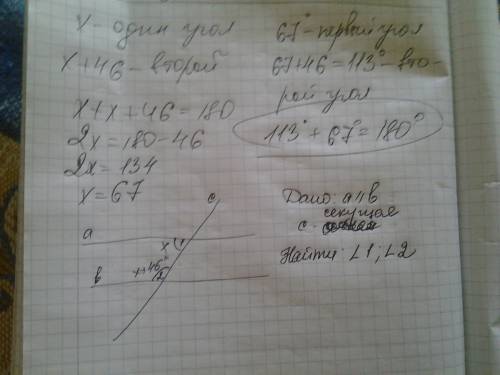 x - один угол
x+46 - второй
x+x+46=180
2x=180-46
2x=134
x=67
67° - первый угол
67+46=113° - вто-
рой угол
113°+67°=180°
a
b
c
x
1
x+46°
2
Дано: a II b
секущая
c -
Найти: ∠1; ∠2